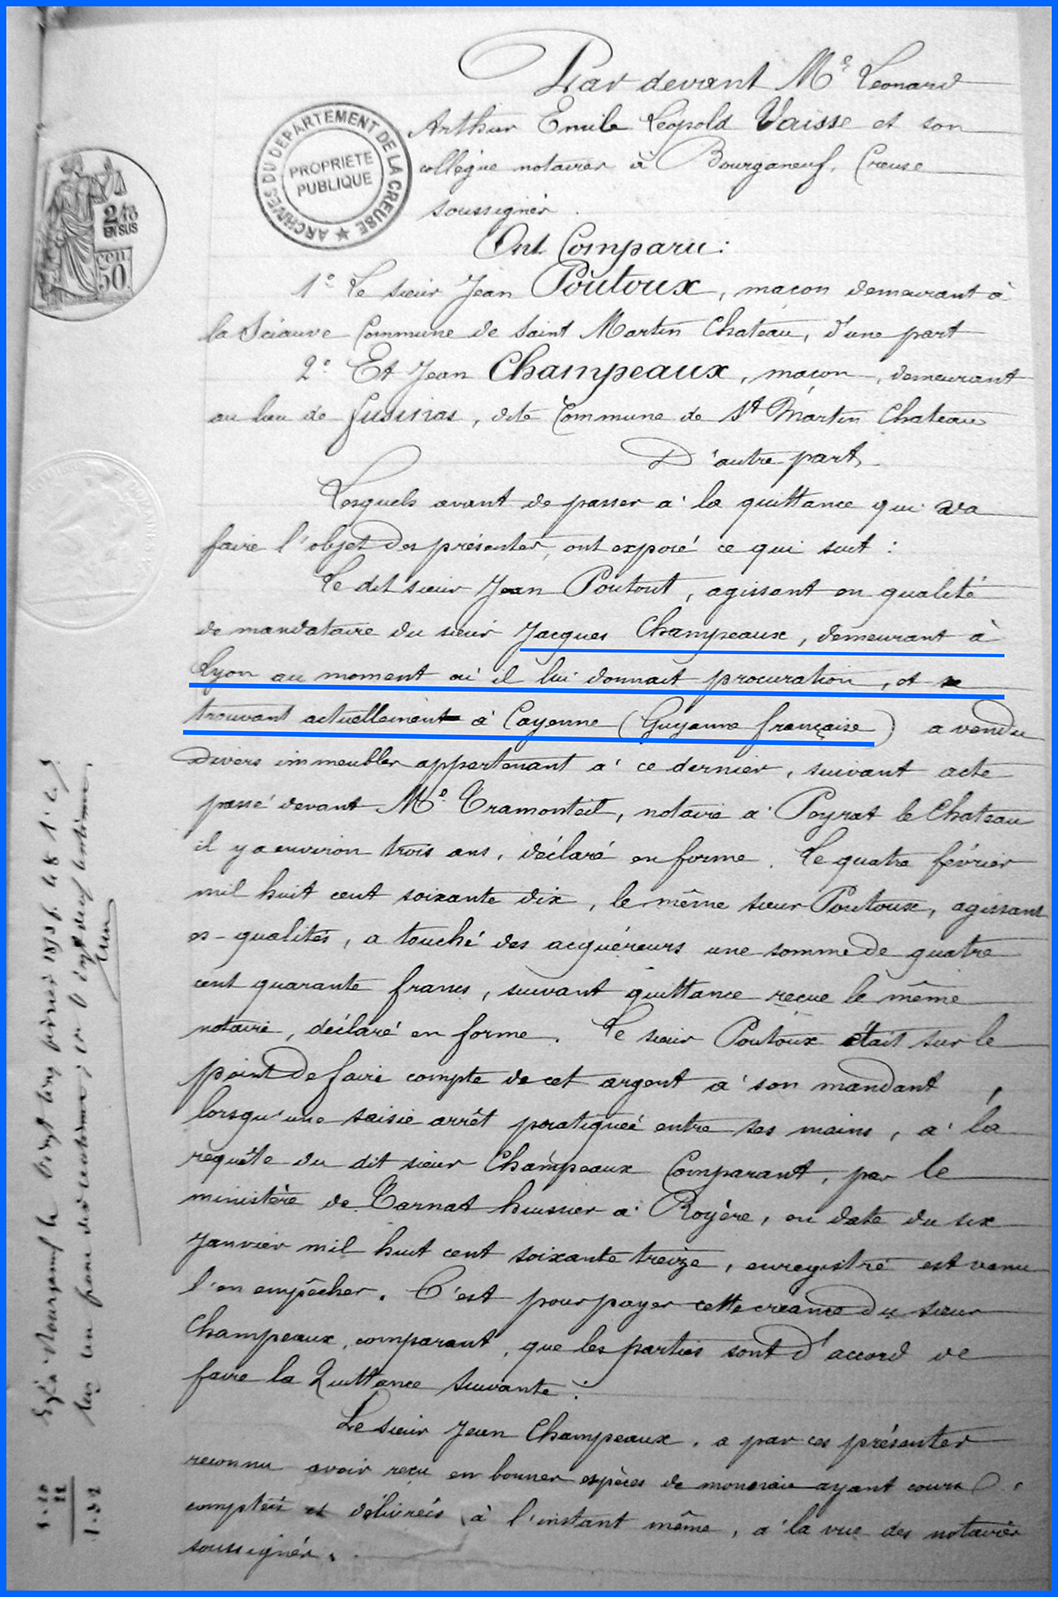 Par devant Me Léonard
Arthur Emile Léopold Vaisse et son
collègue notaires à Bourganeuf, Creuse
soussignés.
ARCHIVES DU DEPARTEMENT DE LA CREUSE
PROPRIETE
PUBLIQUE
2/10
EN SUS
cen.
50
Ont Comparu :
1° Le sieur Jean Poutoux, maçon demeurant à
la Sciauve Commune de Saint Martin Chateau, d'une part
2° Et Jean Champeaux, maçon, demeurant
au lieu de, dite Commune de St Martin Chateau
D'autre part,
Lesquels avant de passer à la quittance qui va
faire l'objet des présentes, ont exposé ce qui suit :
Le dit sieur Jean Poutout, agissant en qualité
de mandataire du sieur Jacques Champeaux, demeurant à
Lyon au moment où il lui donnait procuration, et se
trouvant actuellement à Cayenne (Guyanne française) a vendu
divers immeubles appartenant à ce dernier, suivant acte
passé devant Me Tramonteil, notaire à Peyrat le Chateau
il y a environ trois ans, déclaré en forme. Le quatre février
mil huit cent soixante dix, le même sieur Poutoux, agissant
es-qualités, a touché des acquéreurs une somme de quatre
cent quarante francs, suivant quittance reçue le même
notaire, déclaré en forme. Le sieur Poutoux était sur le
point de faire compte de cet argent à son mandant,
lorsqu'une saisie arrêt pratiquée entre ses mains, à la
requête du dit sieur Champeaux Comparant, par le
ministère de Tarnat huissier à Royère, en date du six
Janvier mil huit cent soixante treize, enregistré est venu
l'en empêcher. C'est pour payer cette créance du sieur
Champeaux, comparant, que les parties sont d'accord de
faire la Quittance suivante :
Le sieur Jean Champeaux, a par ces présentes
reconnu avoir reçu en bonnes espèces de monnaie ayant cours,
comptées et délivrées à l'instant même, à la vue des notaires
soussignés.